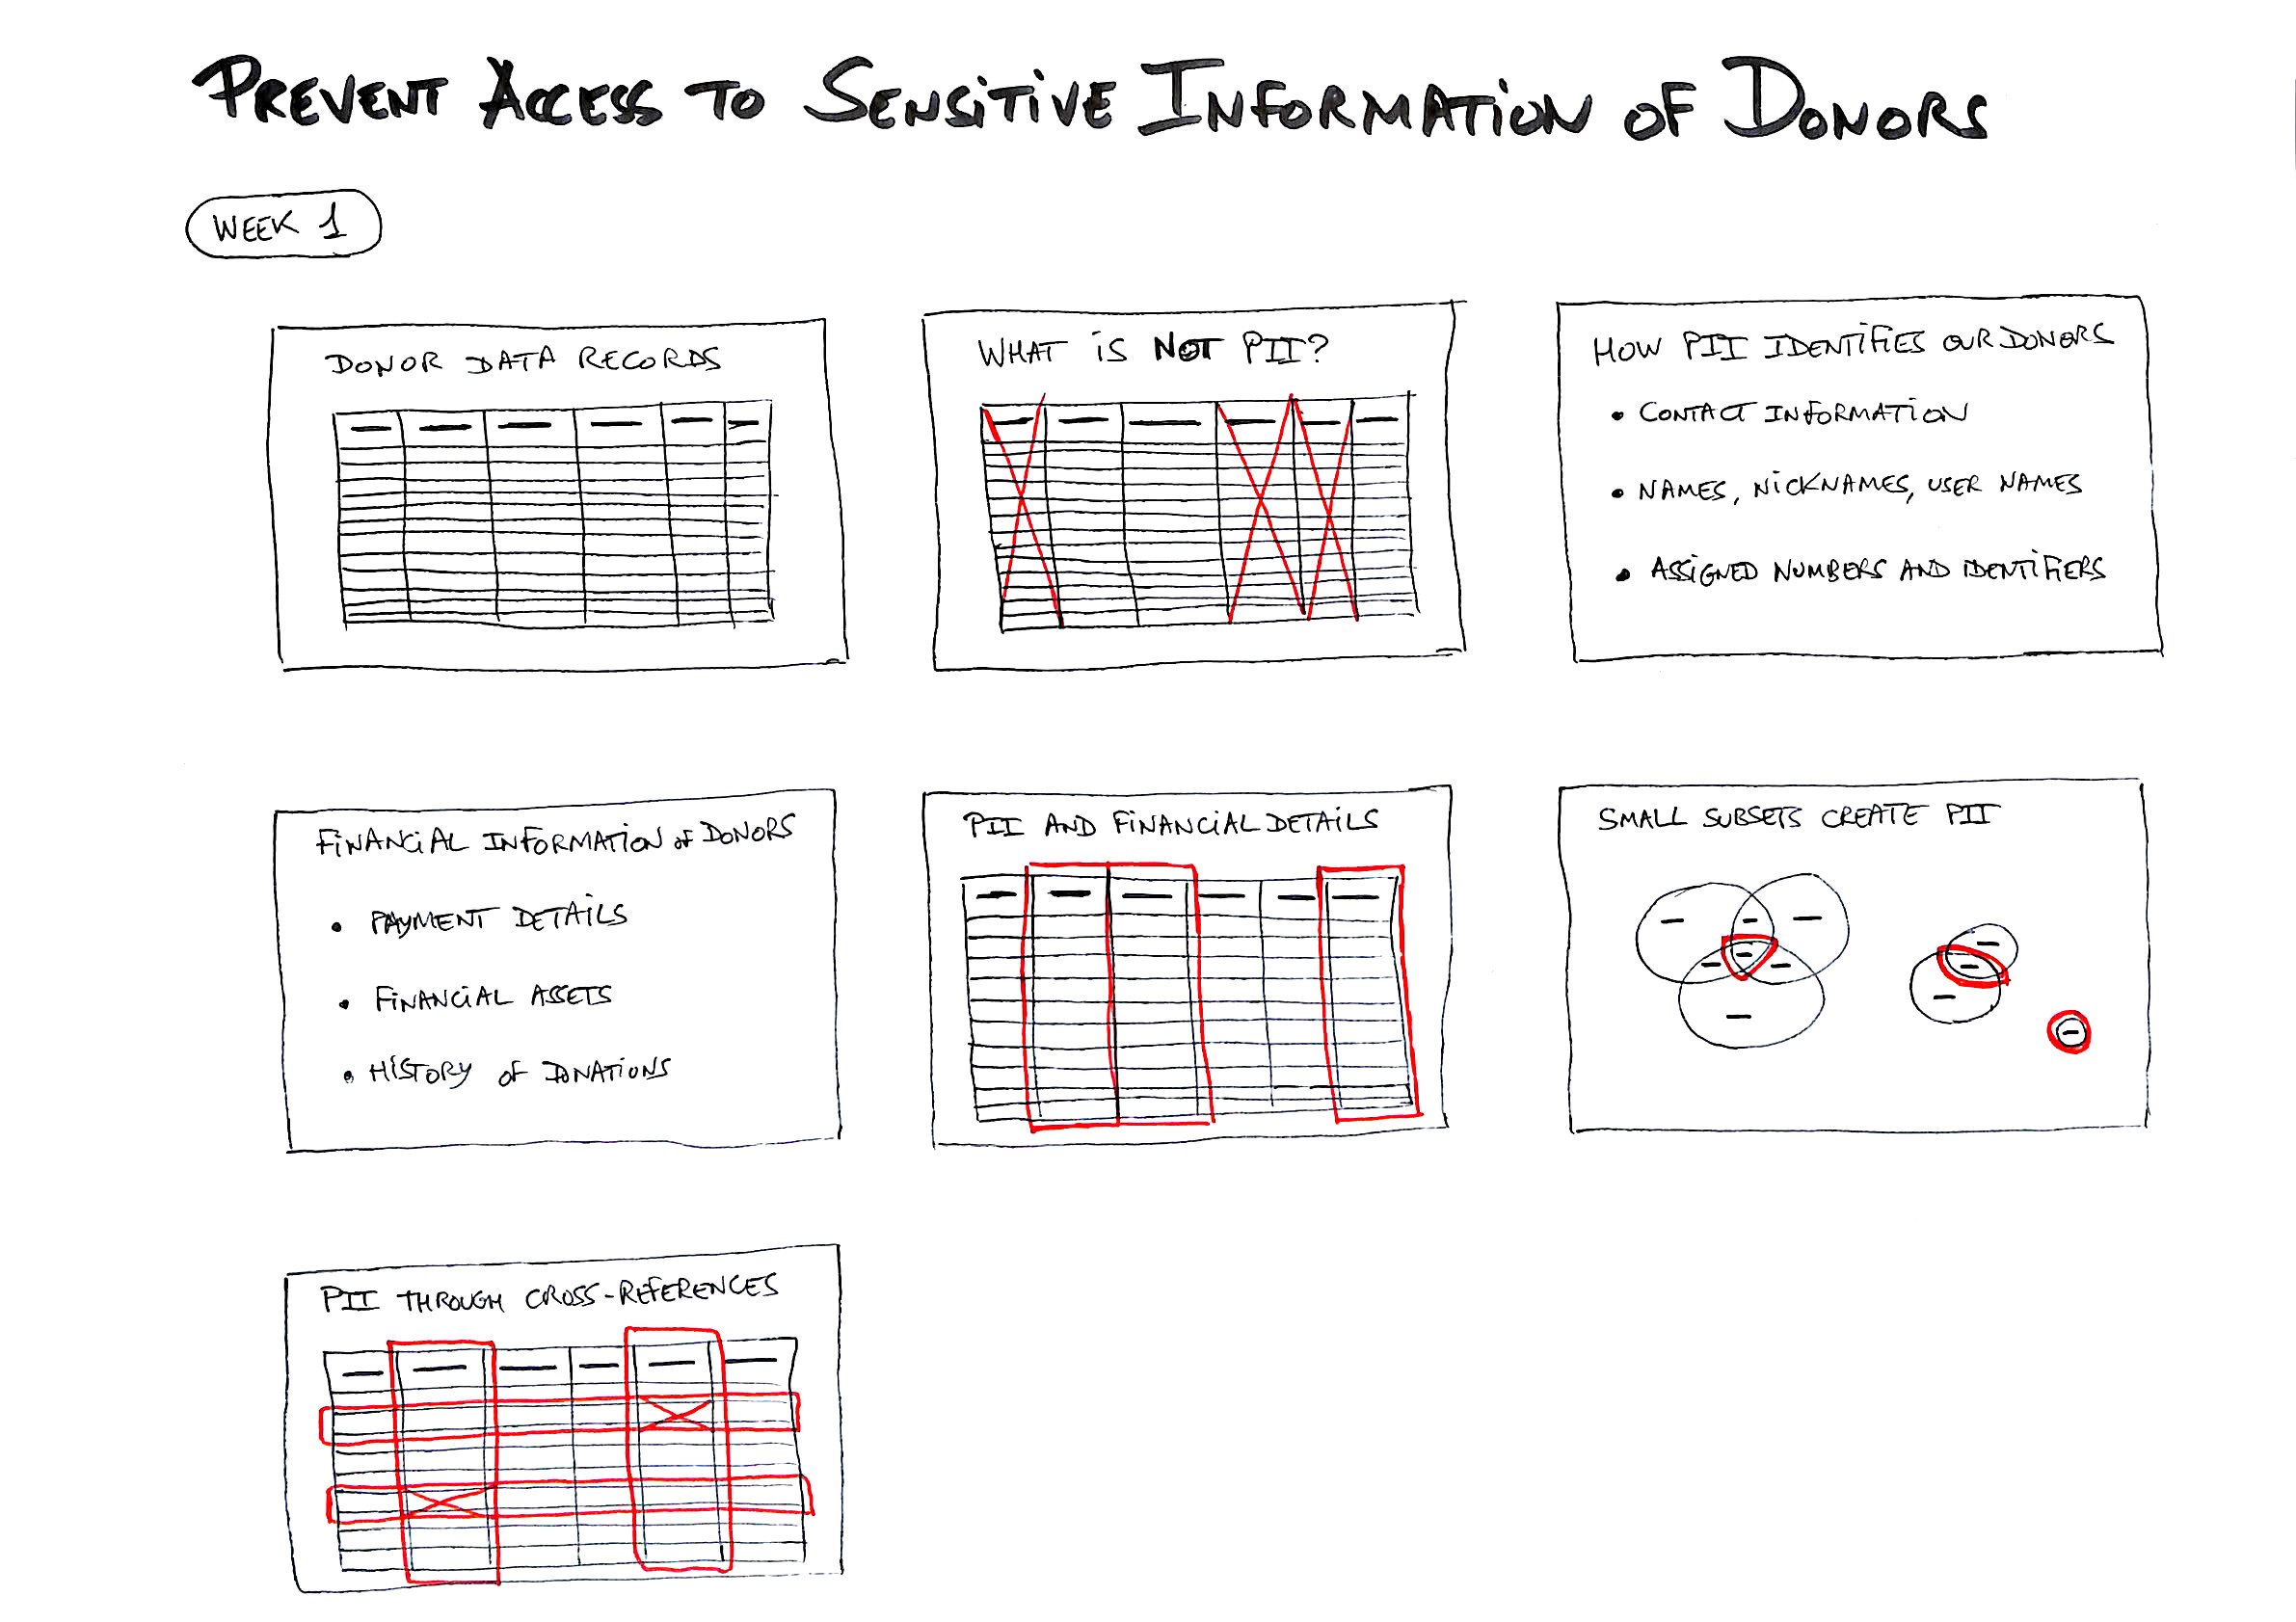 PREVENT ACCESS TO SENSITIVE INFORMATION OF DONORS
WEEK 1
DONOR DATA RECORDS
WHAT IS NOT PII?
HOW PII IDENTIFIES OUR DONORS
• CONTACT INFORMATION
• NAMES, NICKNAMES, USER NAMES
• ASSIGNED NUMBERS AND IDENTIFIERS
FINANCIAL INFORMATION of DONORS
• PAYMENT DETAILS
• FINANCIAL ASSETS
• HISTORY OF DONATIONS
PII AND FINANCIAL DETAILS
SMALL SUBSETS CREATE PII
PII THROUGH CROSS-REFERENCES